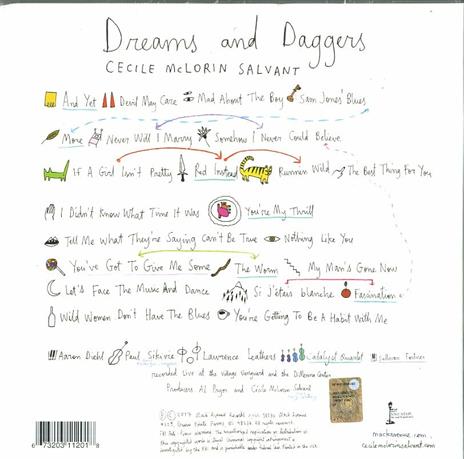 Dreams and Daggers
CECILE McLORIN SALVANT
And Yet Devil May Care Mad About The Boy Sam Jones' Blues
More Never Will I Marry Somehow I Never Could Believe
If A Girl Isn't Pretty Red Instead Runnin Wild The Best Thing For You
I Didn't Know What Time It Was You're My Thrill
Tell Me What They're Saying Can't Be True Nothing Like You
You've Got To Give Me Some The Worm My Man's Gone Now
Let's Face The Music And Dance Si j'étais blanche Fascination
Wild Women Don't Have The Blues You're Getting To Be A Habit With Me
Aaron Diehl Paul Sikivie Lawrence Leathers Catalyst Quartet Sullivan Fortner
recorded Live at the Village Vanguard and the DiMenna Center
Producers Al Pryor and Cécile McLorin Salvant
mackavenue.com
cecilemclorinsalvant.com
6 73203 11201 8